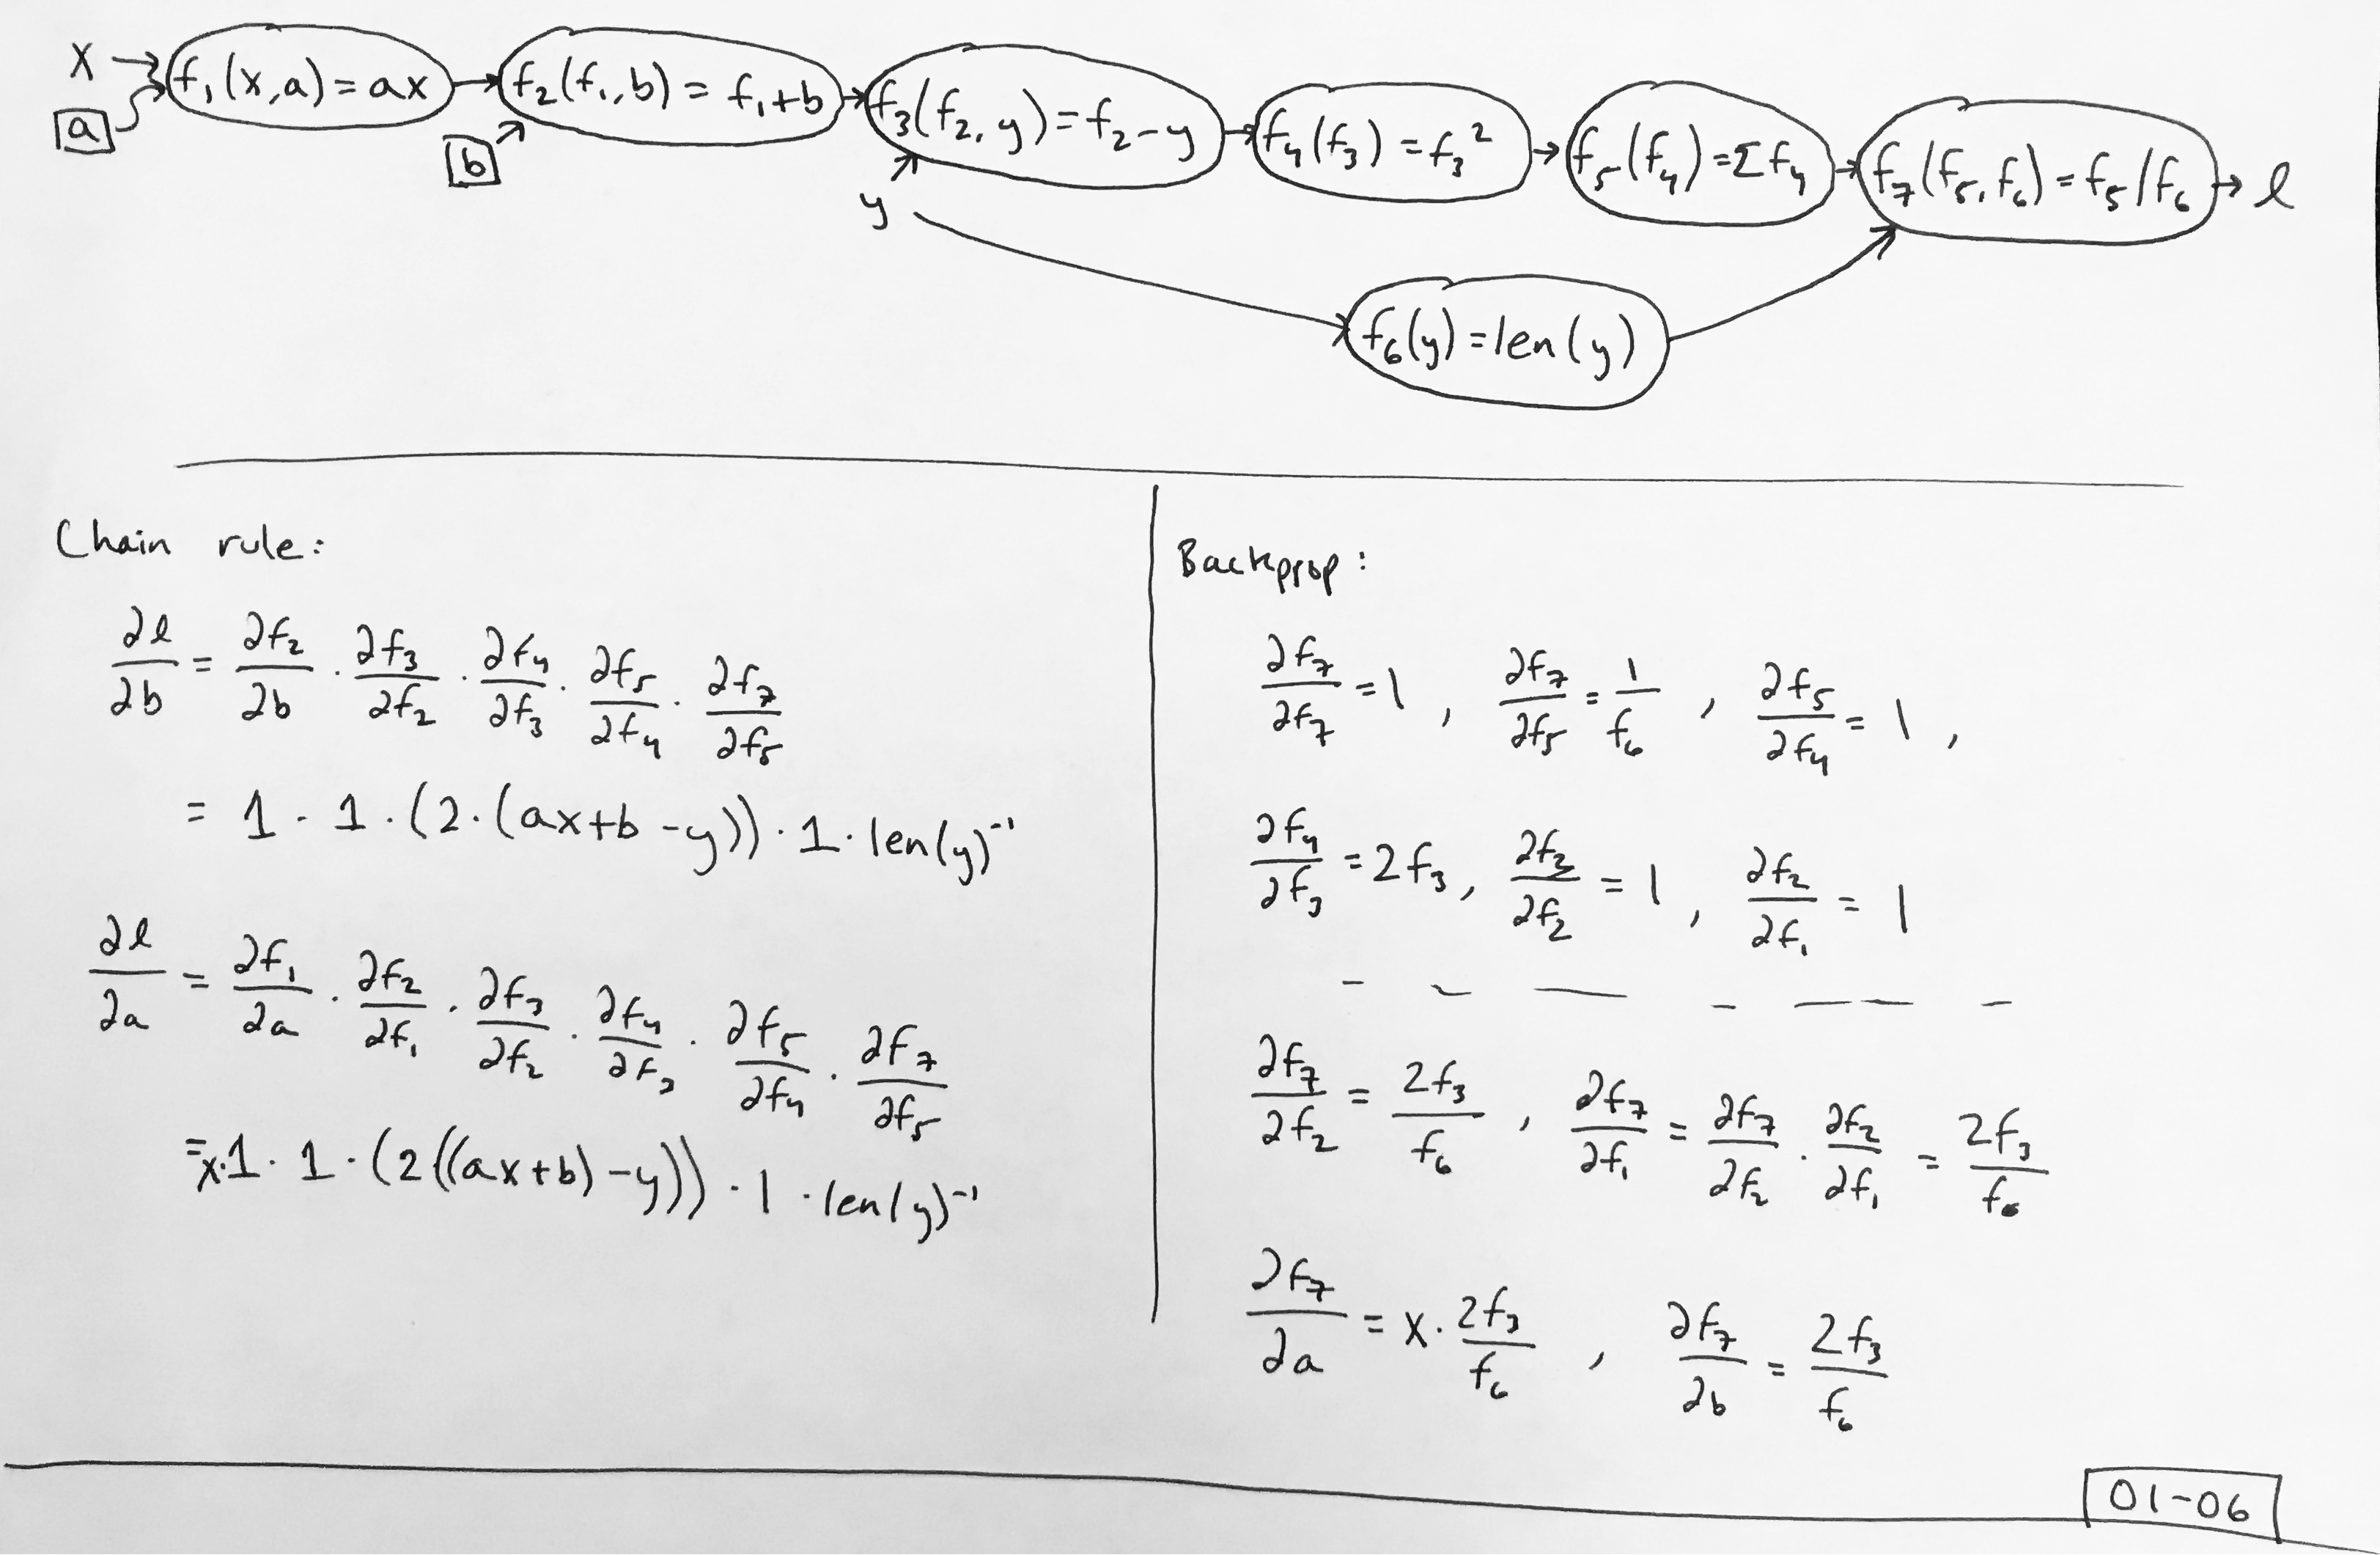 x
a
f₁(x,a) = ax
f₂(f₁,b) = f₁+b
b
f₃(f₂,y) = f₂-y
y
f₄(f₃) = f₃²
f₅(f₄) = Σf₄
f₇(f₅,f₆) = f₅/f₆
ℓ
f₆(y) = len(y)
Chain rule:
∂ℓ/∂b = ∂f₂/∂b · ∂f₃/∂f₂ · ∂f₄/∂f₃ · ∂f₅/∂f₄ · ∂f₇/∂f₅
= 1 · 1 · (2·(ax+b-y)) · 1 · len(y)⁻¹
∂ℓ/∂a = ∂f₁/∂a · ∂f₂/∂f₁ · ∂f₃/∂f₂ · ∂f₄/∂f₃ · ∂f₅/∂f₄ · ∂f₇/∂f₅
= x·1 · 1 · (2((ax+b)-y)) · 1 · len(y)⁻¹
Backprop:
∂f₇/∂f₇ = 1, ∂f₇/∂f₅ = 1/f₆, ∂f₅/∂f₄ = 1,
∂f₄/∂f₃ = 2f₃, ∂f₃/∂f₂ = 1, ∂f₂/∂f₁ = 1
∂f₇/∂f₂ = 2f₃/f₆, ∂f₇/∂f₁ = ∂f₇/∂f₂ · ∂f₂/∂f₁ = 2f₃/f₆
∂f₇/∂a = x · 2f₃/f₆, ∂f₇/∂b = 2f₃/f₆
01-06